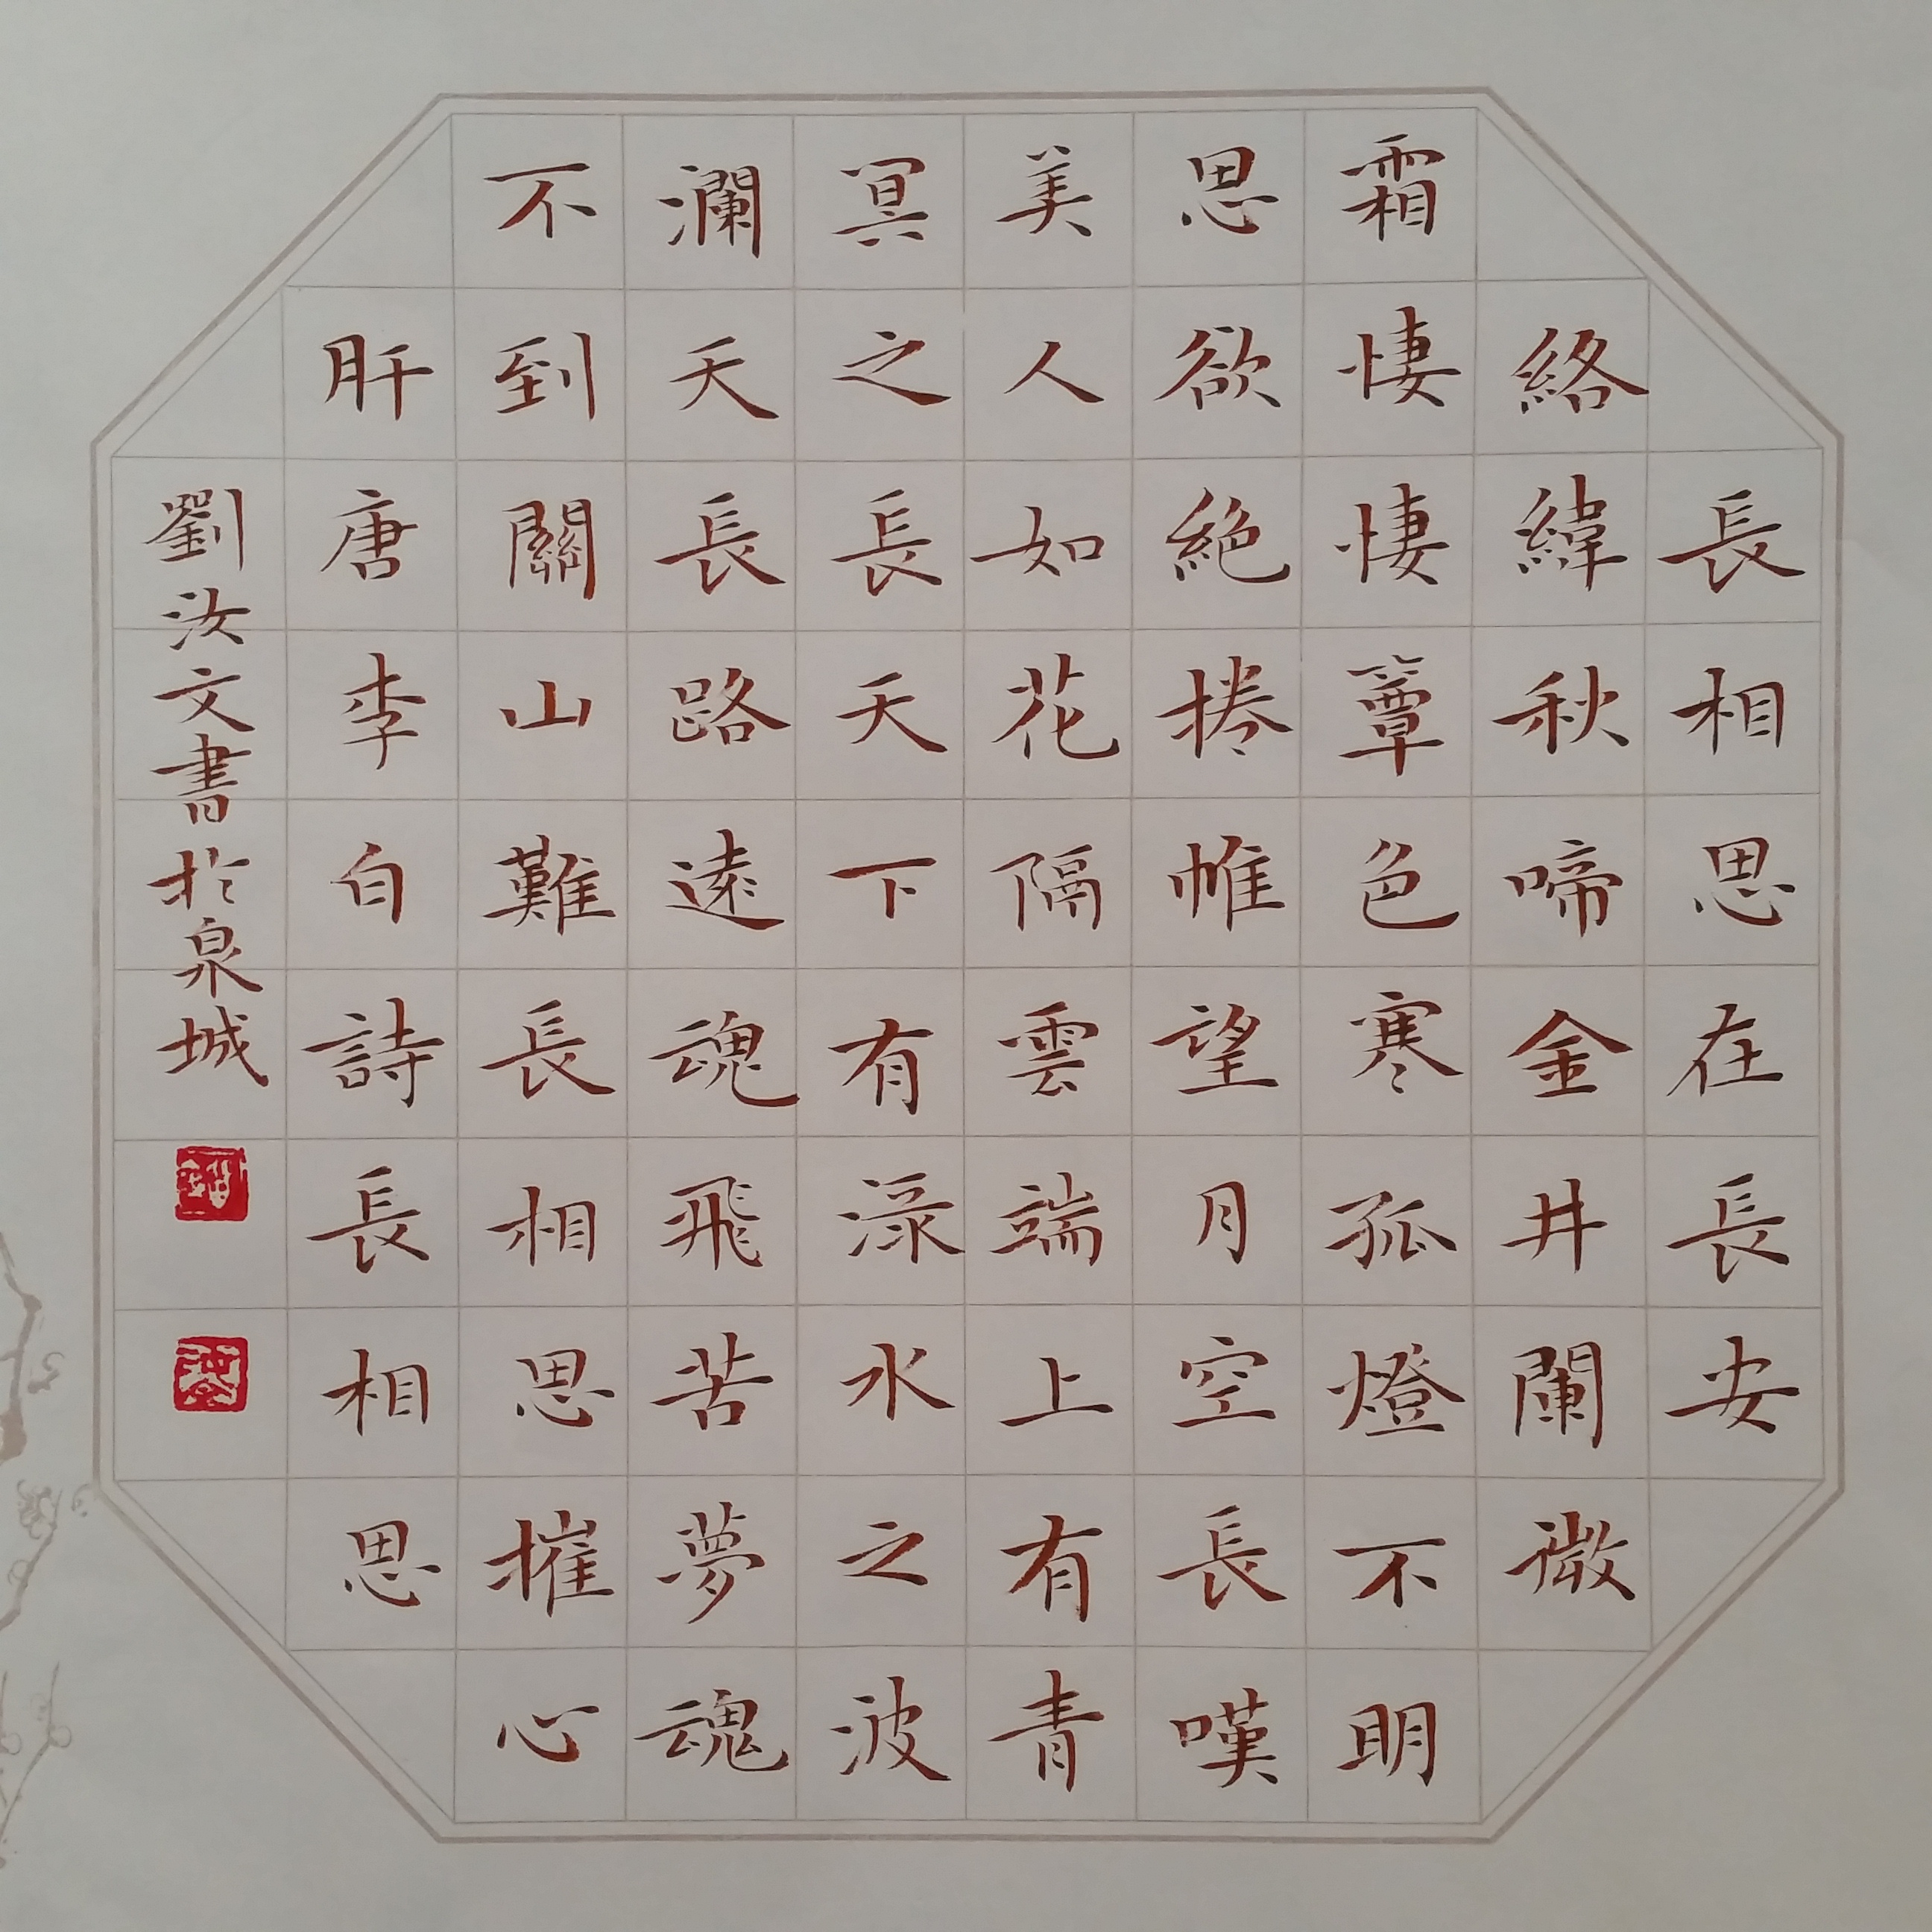 長相思在長安
絡緯秋啼金井闌微
霜悽悽簟色寒孤燈不明
思欲絕捲帷望月空長嘆
美人如花隔雲端上有青
冥之長天下有淥水之波
瀾天長路遠魂飛苦夢魂
不到關山難長相思摧心
肝唐李白詩長相思
劉汝文書於泉城